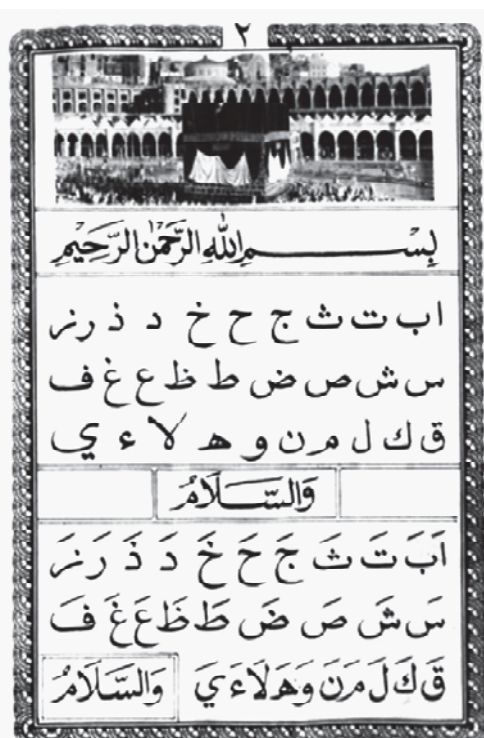 ٢
بِسْمِ اللهِ الرَّحْمٰنِ الرَّحِيْمِ
ا ب ت ث ج ح خ د ذ ر ز
س ش ص ض ط ظ ع غ ف
ق ك ل م ن و ه لا ء ي
وَالسَّلَامُ
اَ بَ تَ ثَ جَ حَ خَ دَ ذَ رَ زَ
سَ شَ صَ ضَ طَ ظَ عَ غَ فَ
قَ كَ لَ مَ نَ وَ هَ لَا ءَ يَ
وَالسَّلَامُ